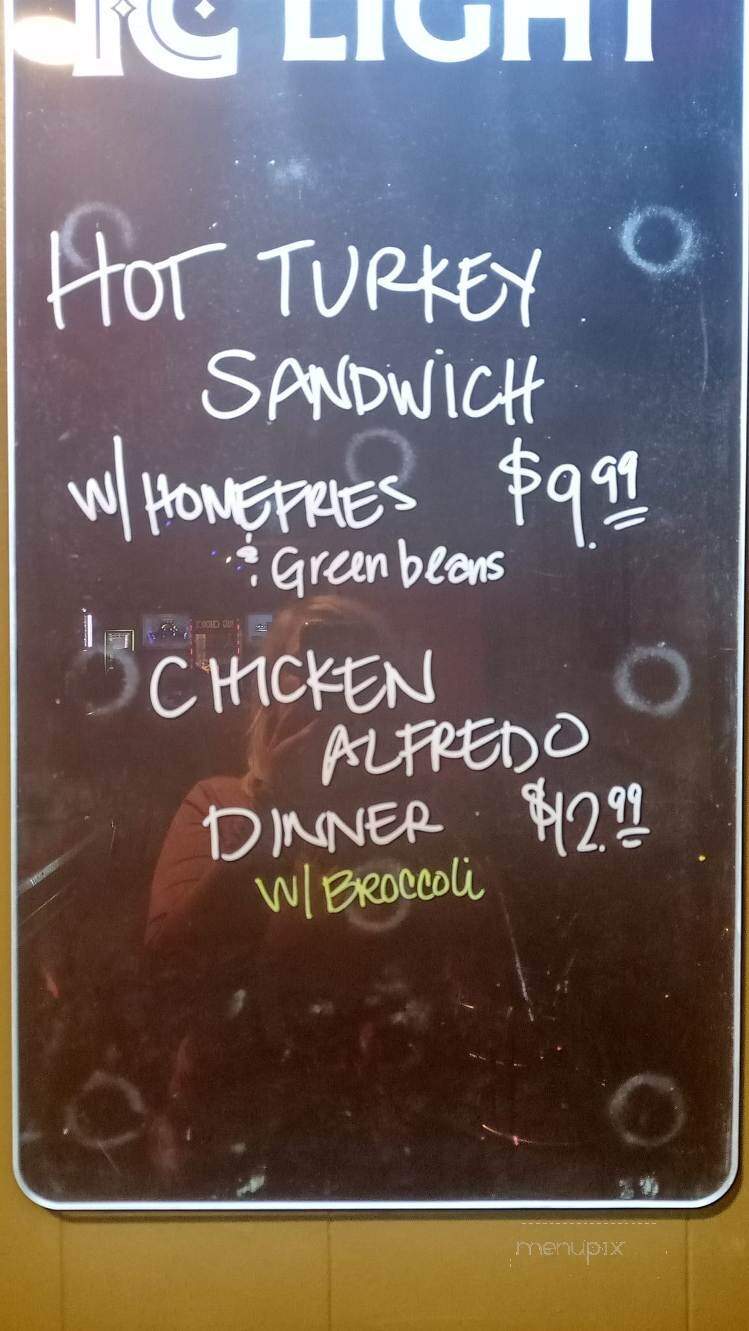 LIGHT
HOT TURKEY
SANDWICH
W/ HOMEFRIES $9.99
& Green beans
CHICKEN
ALFREDO
DINNER $12.99
W/ BROCCOLi
menupix